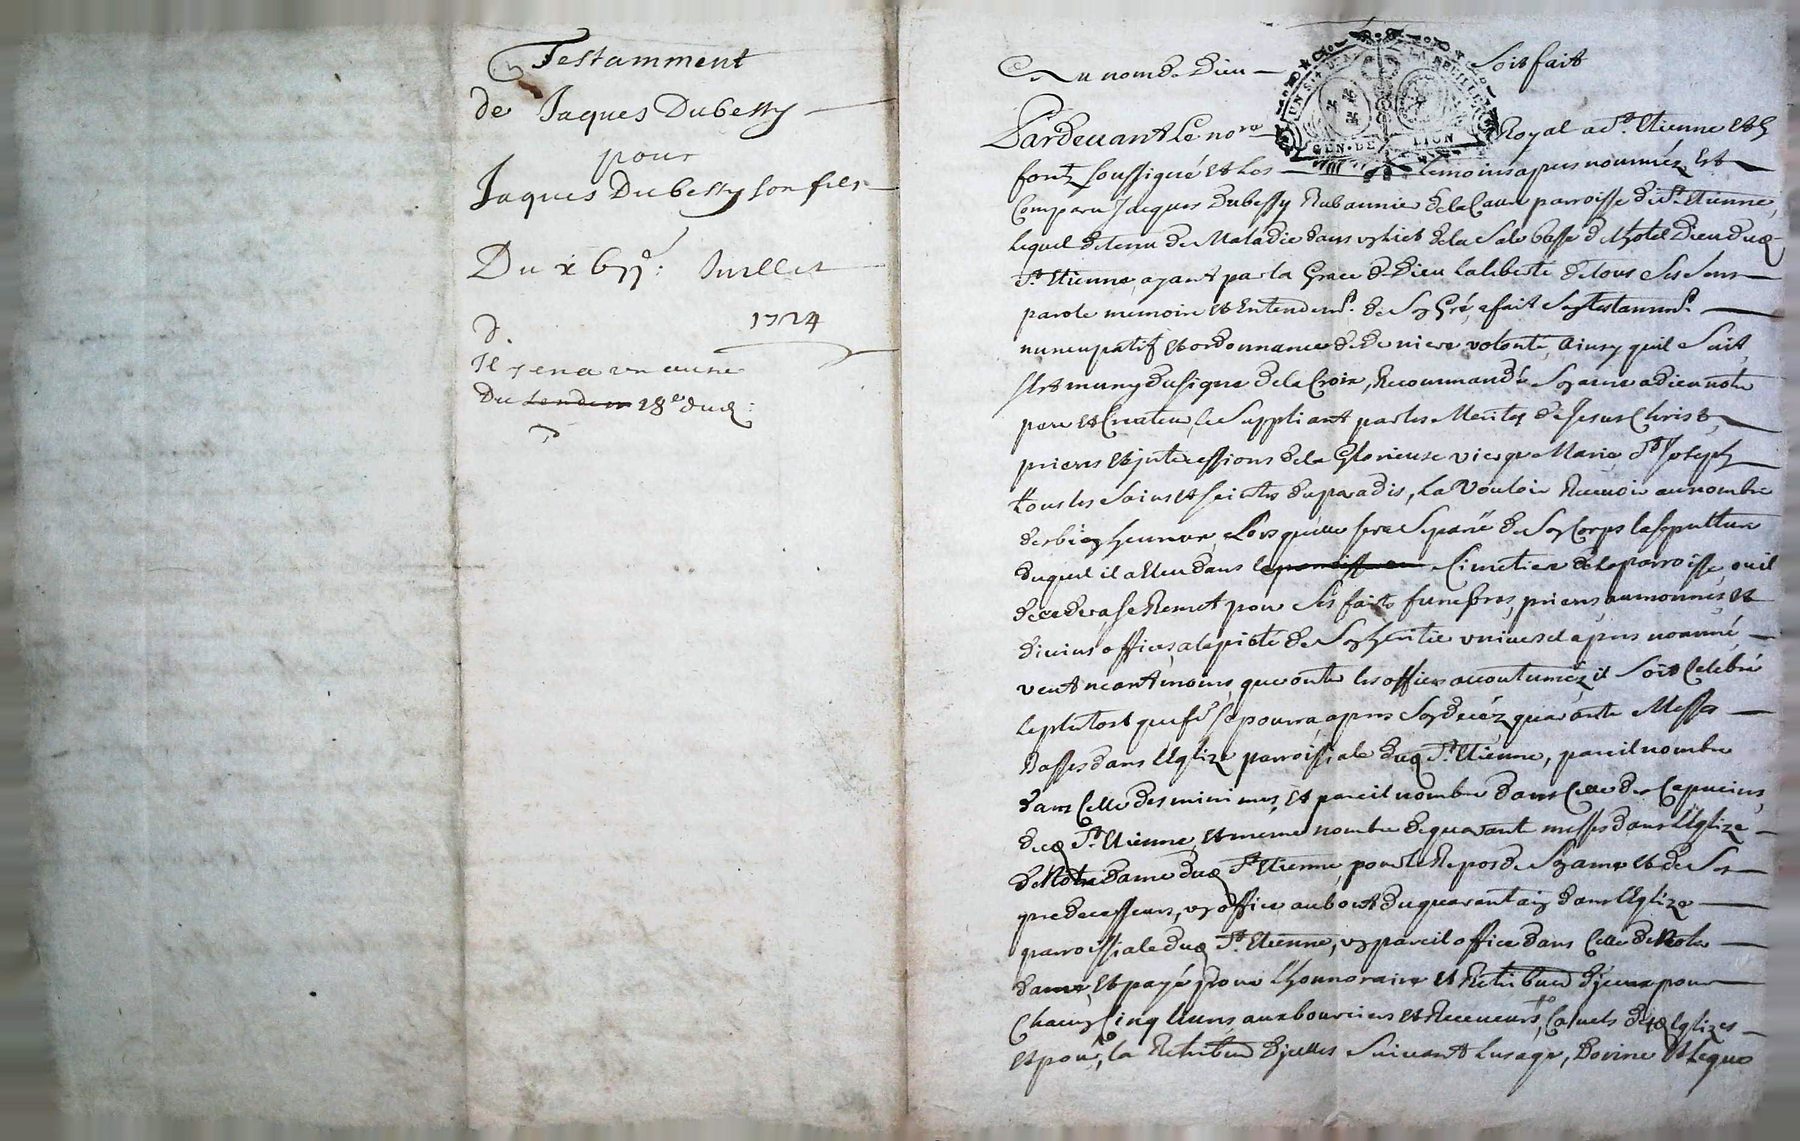 Testamment
de Jaques Dubessy
pour
Jaques Dubessy son fils
Du xbii^e: Juillet
1724
Il y en a un autre
Du 18^e dud:
Au nom de Dieu Soit fait
Pardevant Le no^re Royal a S^t. Etienne et
soussigné et Les temoins apres nommés Est
Comparu Jacques Dubessy Rubannier de la parroisse de S^t. Etienne,
Lequel detenu de Maladie dans un lict de la Sale basse de Lhotel Dieu dud
S^t. Etienne, ayant par la Grace de Dieu La liberté de tous Ses Sens
parole memoire et Entendem^t. de Son Gré, a fait Son testamm^t.
nuncupatif et ordonnance de derniere volonté, Ainsy quil Suit,
S'est muny du signe de la Croix, Recommandé Son ame a dieu notre
pere et Createur, Le Suppliant par les Merites de Jesus Christ,
prieres et intercessions de la Glorieuse vierge Marie, S^t. Joseph
tous les Saints et Saintes du paradis, La Vouloir Recevoir au nombre
des bien heureux, Lors quelle sera Separée de Son Corps la sepulture
duquel il a Eleu dans le Cimetiere de la parroisse, ou il
decedera se Remet pour Ses fraits funebres, prieres, aumonnes, et
divins offices a la pieté de Son heritier universel apres nommé,
veut neantmoins, que outre les offices accoutumés, il Soit Celebré
Le plutost que se pourra, apres Son decéz, quarante Messes
Basses dans L'Eglize parroissiale dud S^t. Etienne, pareil nombre
dans Celle des minimes, et pareil nombre dans Celle des Capucins,
dud S^t. Etienne, et meme nombre de quarante messes dans L'Eglize
de Notre dame dud S^t. Etienne, pour le Repos de Son ame et de Ses
predecesseurs, un office au bout du quarantain dans L'Eglize
parroissiale dud S^t. Etienne, un pareil office dans Celle de Notre
dame, et payé pour L'honnoraire et Retribu^on d'iceux pour
Chacun Cinq livres aux boursiers et Receveurs, desd Eglizes
et pour la Retribu^on d'icelles Suivant Lusage, Donne et Legue